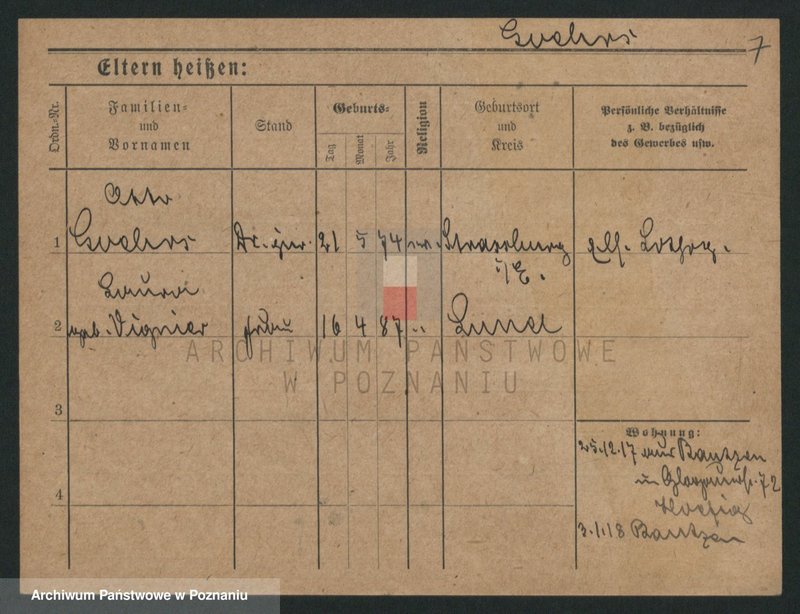 Goehrs
7
Eltern heißen:
Ordn.-Nr.
Familien-
und
Vornamen
Stand
Geburts-
Tag
Monat
Jahr
Religion
Geburtsort
und
Kreis
Persönliche Verhältnisse
z. B. bezüglich
des Gewerbes usw.
Otto
1 Goehrs Dr. jur. 21 5 74 ev. Strassburg
i/E.
Laura
2 geb. Vignier Frau 16 4 87 " Lund
3
4
Wohnung:
25.12.17 aus Bautzen
72
3.1.18 Bautzen
ARCHIWUM PAŃSTWOWE
W POZNANIU
Archiwum Państwowe w Poznaniu